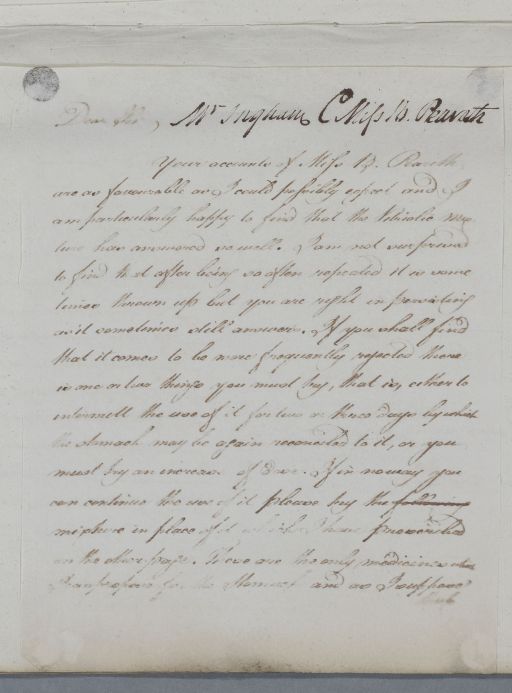 Dear Sir, Mr Ingham C Miss B. Peareth
Your accounts of Miss B. Peareth
are as favourable as I could possibly expect and I
am particularly happy to find that the mix
ture has answered so well. I am not surprised
to find that after being so often repeated it is some
times thrown up but you are right in persisting
as it sometimes still answers. If you shall find
that it comes to be more frequently rejected there
is one or two things you must try, that is, either to
intermitt the use of it for two or three days by which
the stomach may be again reconciled to it, or you
must try an increase of Dose. If in no way you
can continue the use of it please try the following
mixture in place of it which I have prescribed
on the other page. These are the only medicines
I can propose for the Stomach and as I suppose